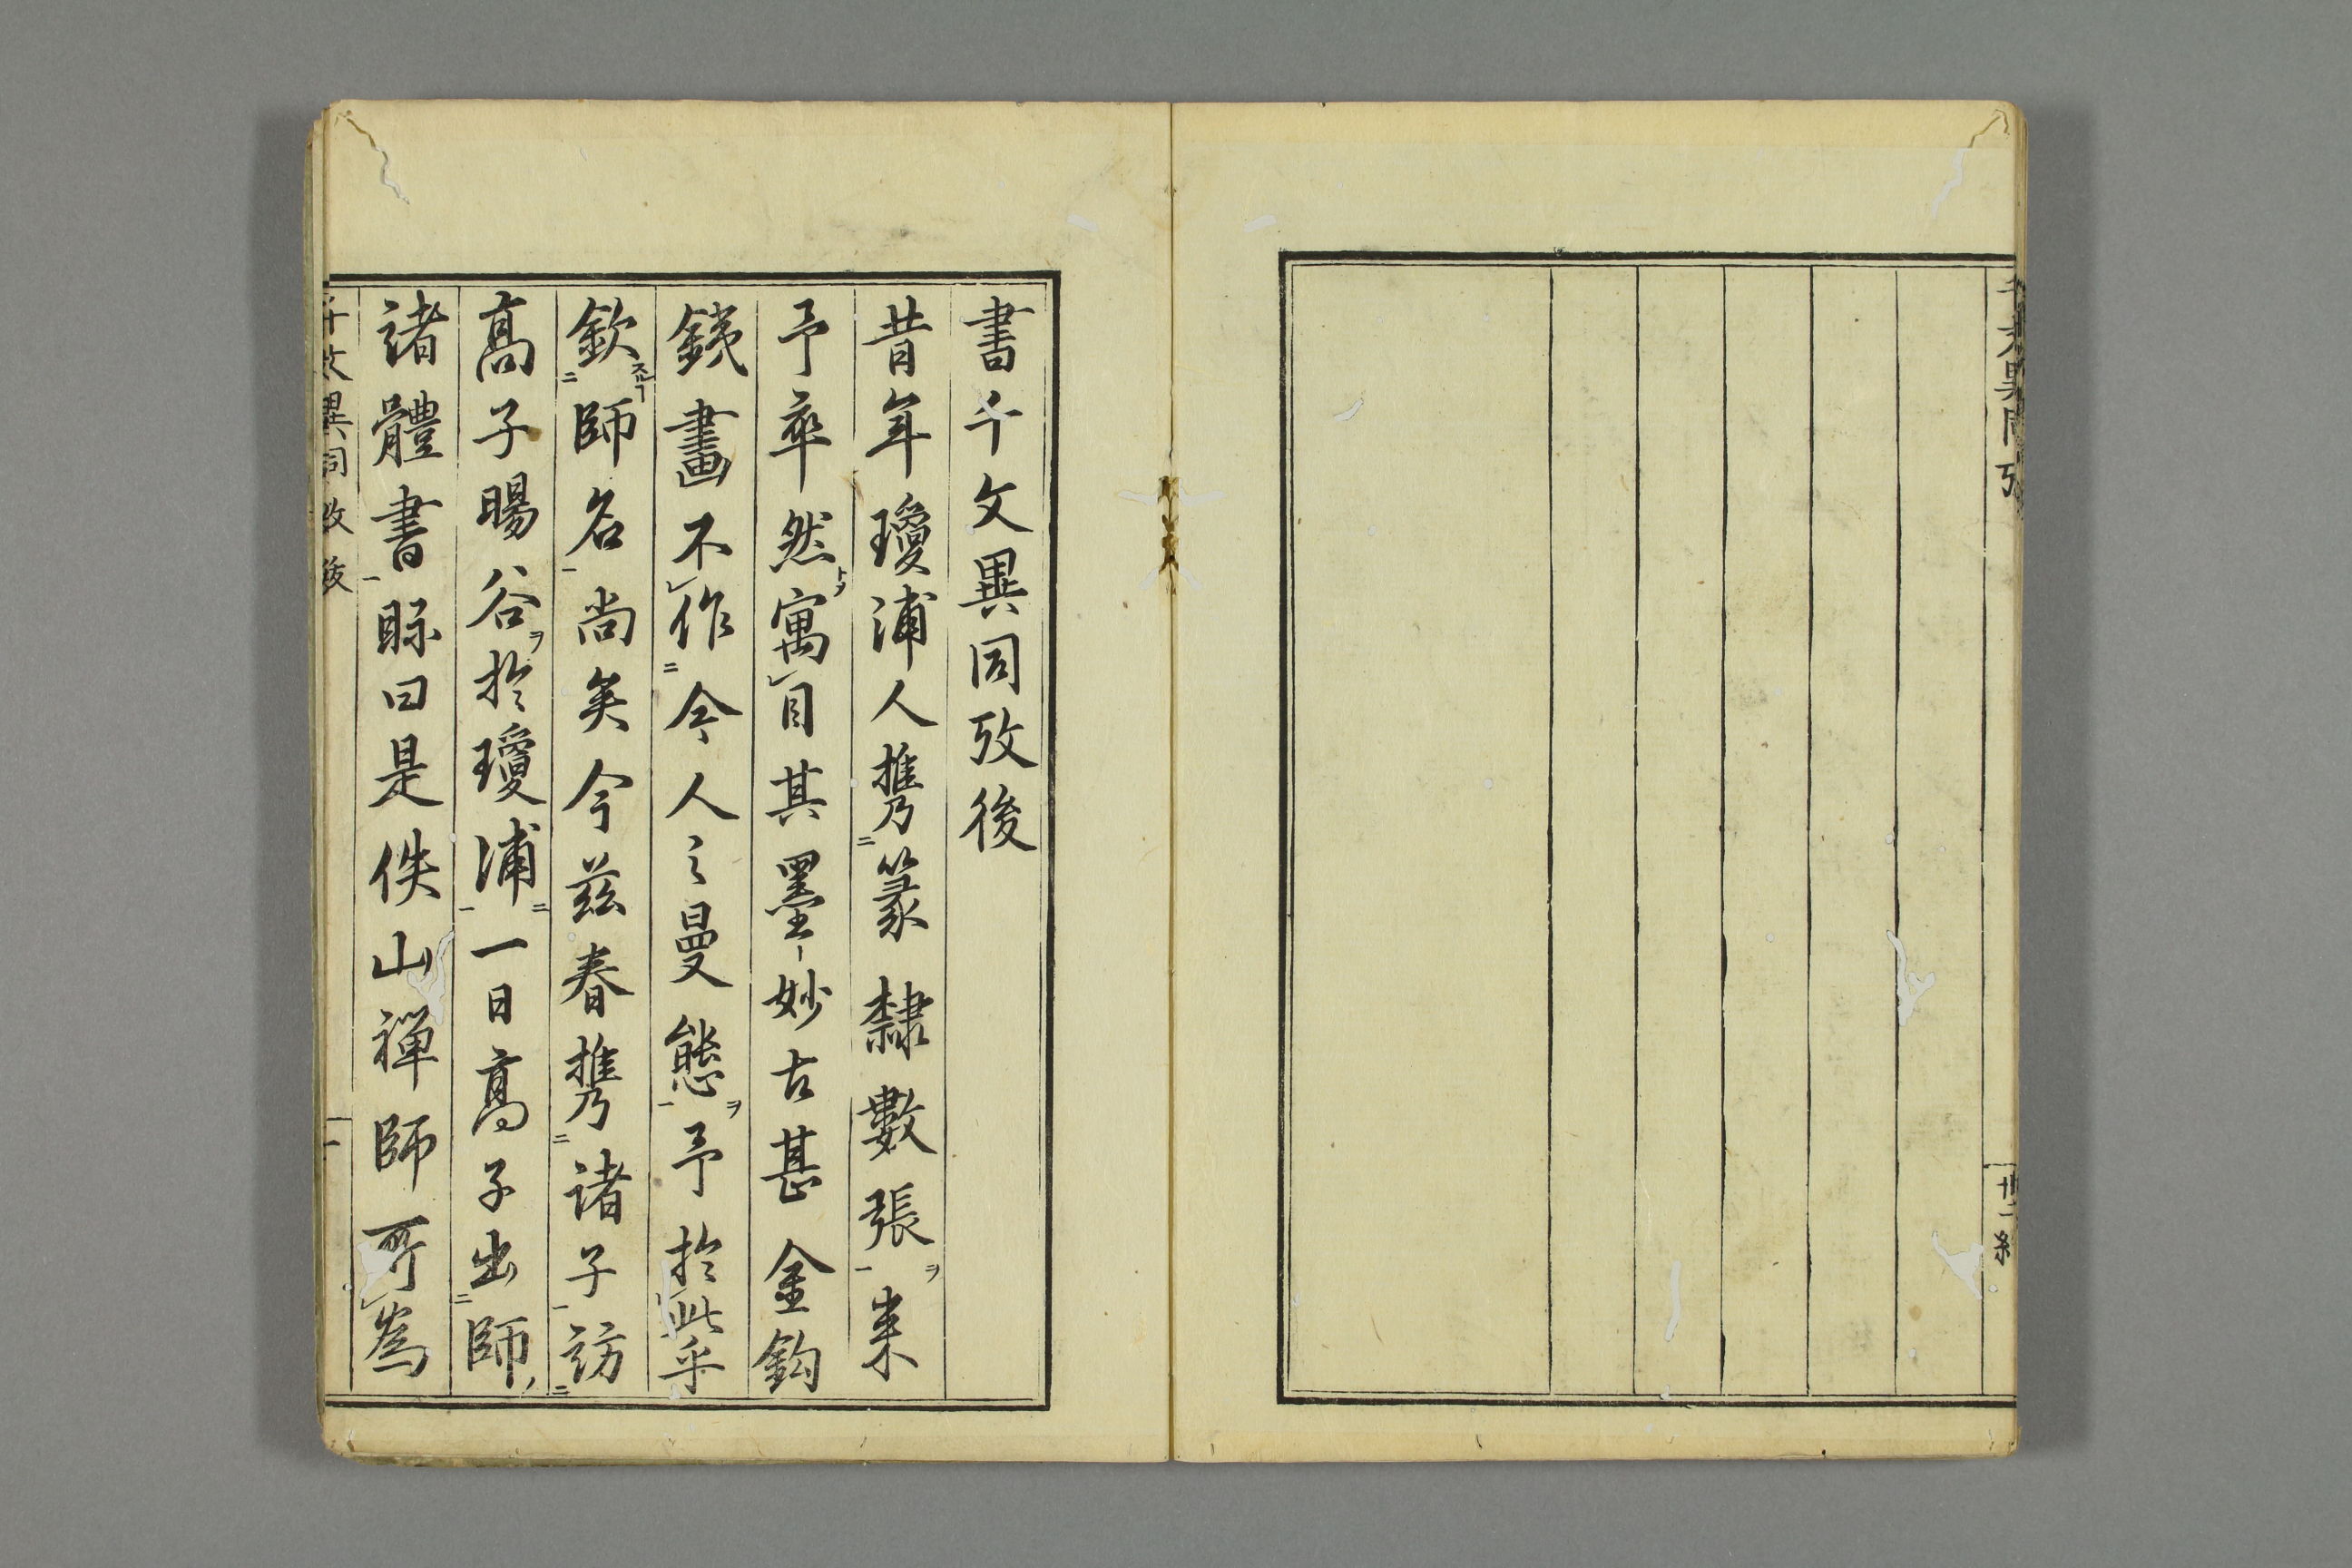 千文異同攷
廿二終
書千文異同攷後
昔年瓊浦人携篆隸數張来
予卒然寓目其墨妙古甚金鈎
銕畫不作今人之曼態予於此乎
欽師名尚矣今茲春携諸子訪
高子暘谷於瓊浦一日高子出師
諸體書眎曰是佚山禅師所為
千文異同攷後
一